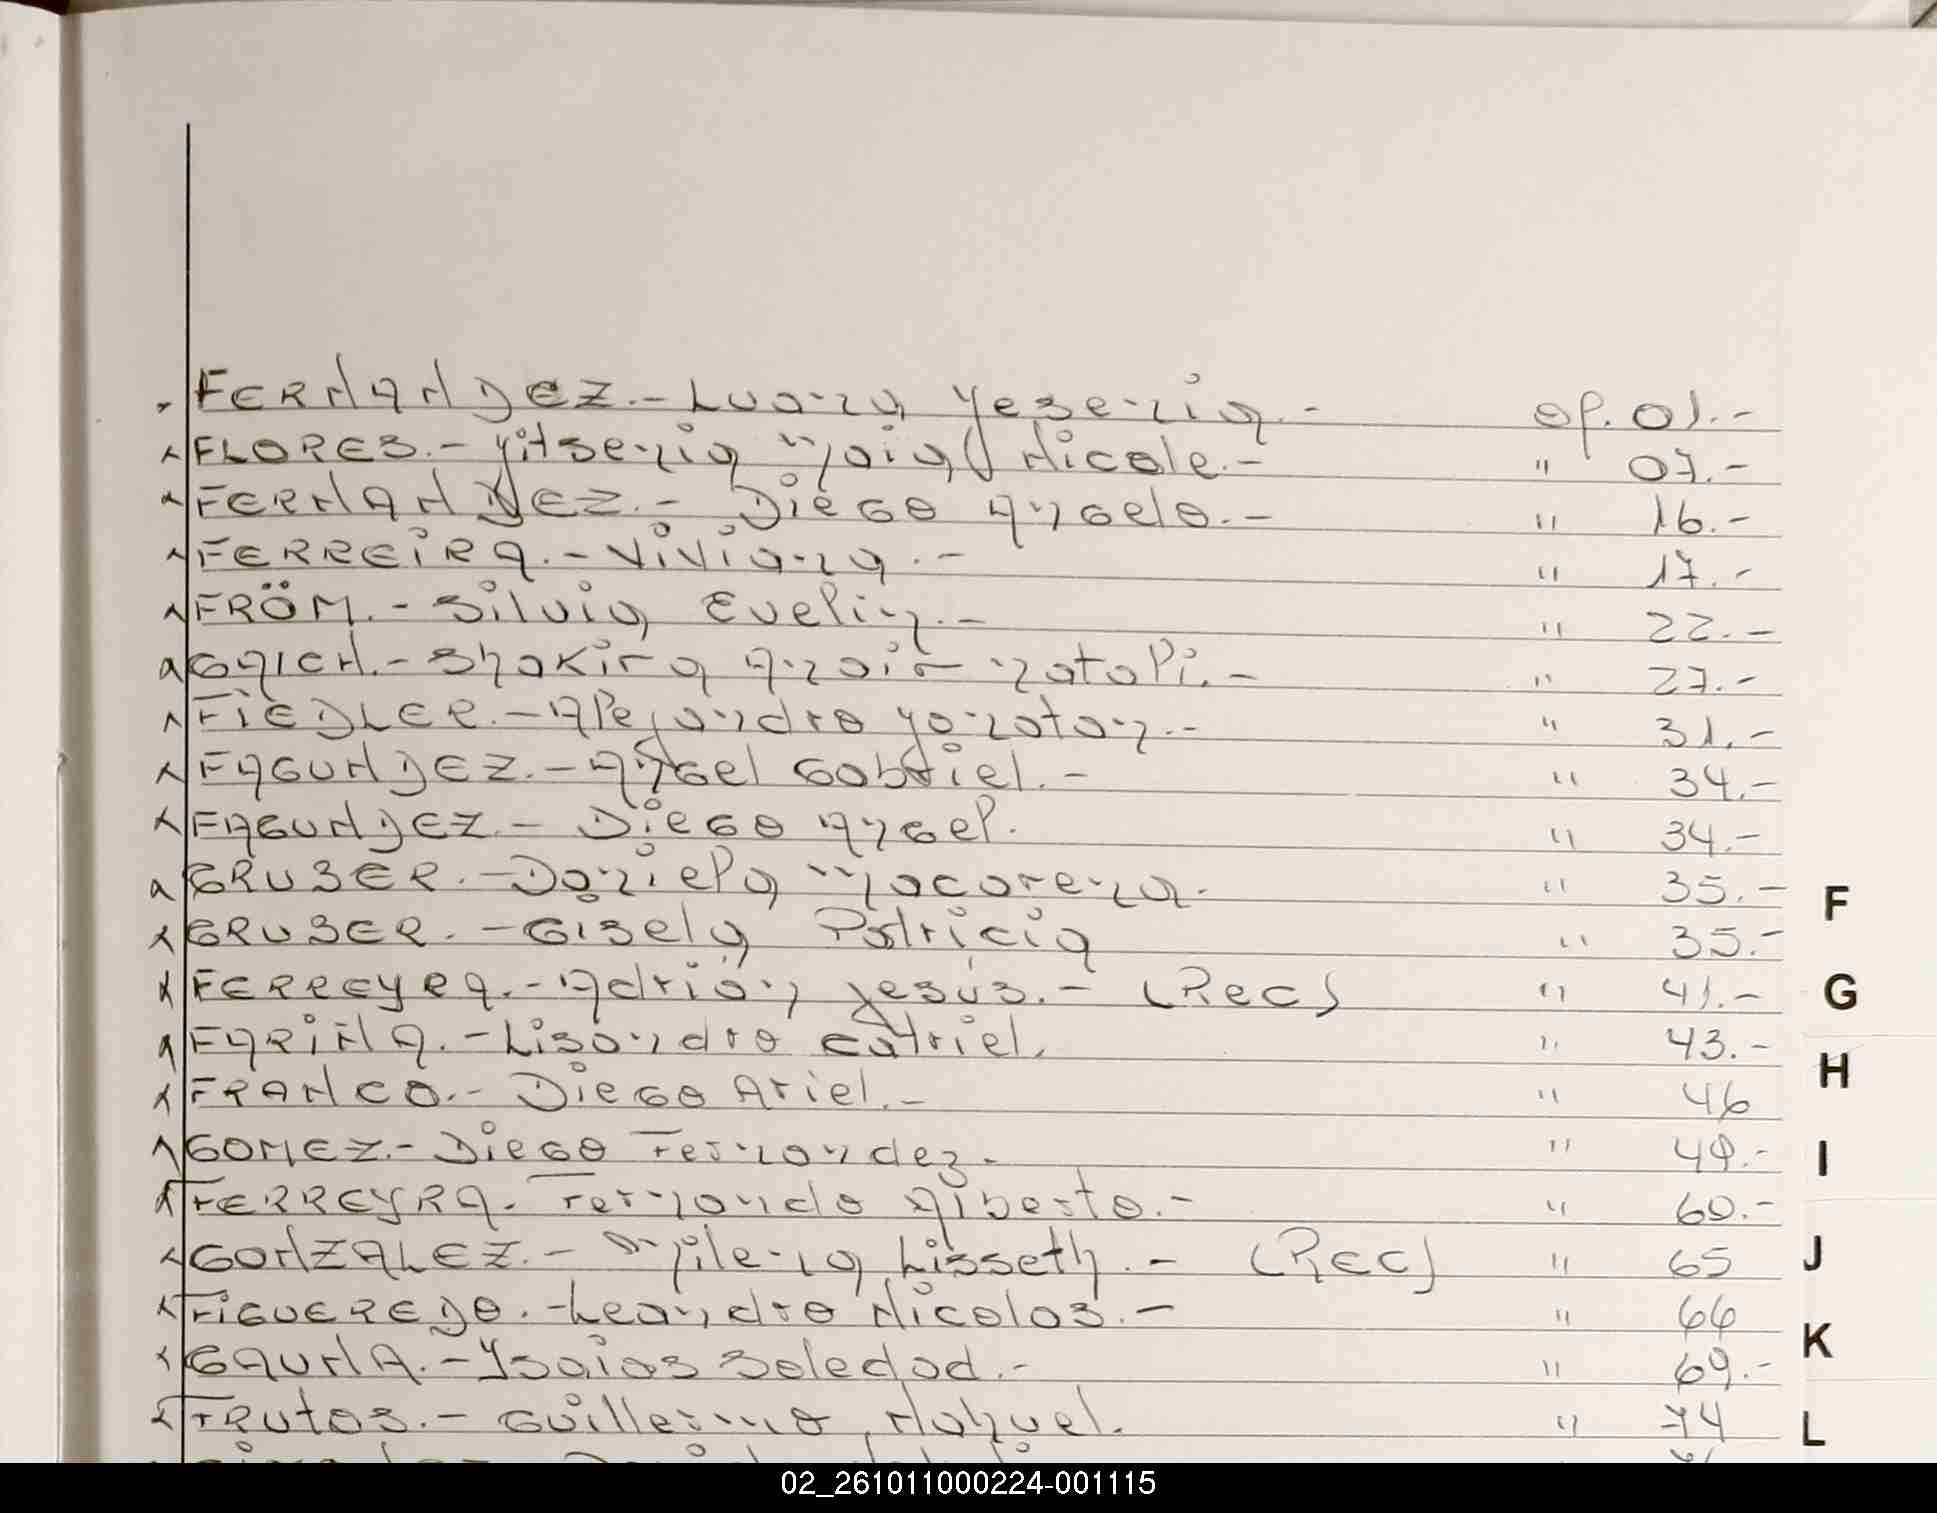 FERNANDEZ.- Luana Yesenia.- op. 01.-
FLORES.- Yitsenia Maia Nicole.- " 07.-
FERNANDEZ.- Diego Angelo.- " 16.-
FERREIRA.- Viviana.- " 17.-
FRÖM.- Silvia Evelin.- " 22.-
GAICH.- Shakira Anair Natali.- " 27.-
FIEDLER.- Alejandro Yonatan.- " 31.-
FAGUNDEZ.- Angel Gabriel.- " 34.-
FAGUNDEZ.- Diego Angel. " 34.-
GRUBER.- Daniela Macarena.- " 35.-
GRUBER.- Gisela Patricia " 35.-
FERREYRA.- Adrián Jesús.- (Rec) " 41.-
FARIÑA.- Lisandro Catriel. " 43.-
FRANCO.- Diego Ariel.- " 46
GOMEZ.- Diego Fernandez. " 49.-
FERREYRA.- Fernando Alberto.- " 60.-
GONZALEZ.- Milena Lisseth.- (Rec) " 65
FIGUEREDO.- Leandro Nicolas.- " 66
GAUNA.- Ysaias Soledad.- " 69.-
FRUTOS.- Guillermo Nahuel. " 74
F
G
H
I
J
K
L
02_261011000224-001115